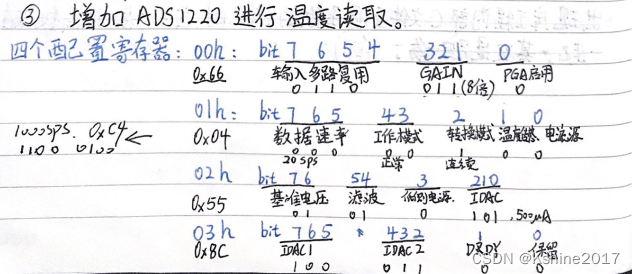 ③ 增加 ADS1220 进行 温度读取。
四个配置寄存器: 00h: bit 7 6 5 4 3 2 1 0
0x66 输入多路复用 GAIN PGA启用
0 1 1 0 0 1 1 (8倍) 0
01h: bit 7 6 5 4 3 2 1 0
1000sps. 0xC4 ← 0x04 数据速率 工作模式 转换模式 电流源
1100 0100 0 0 0 0 0 1 0 0
20sps 正常 连续
02h bit 7 6 5 4 3 2 1 0
0x55 基准电压 滤波 低侧电源. IDAC
0 1 0 1 0 1 0 1 . 500μA
03h bit 7 6 5 4 3 2 1 0
0x8C IDAC1 IDAC2 DRDY 保留
1 0 0 0 1 1 0
CSDN @Kshine2017